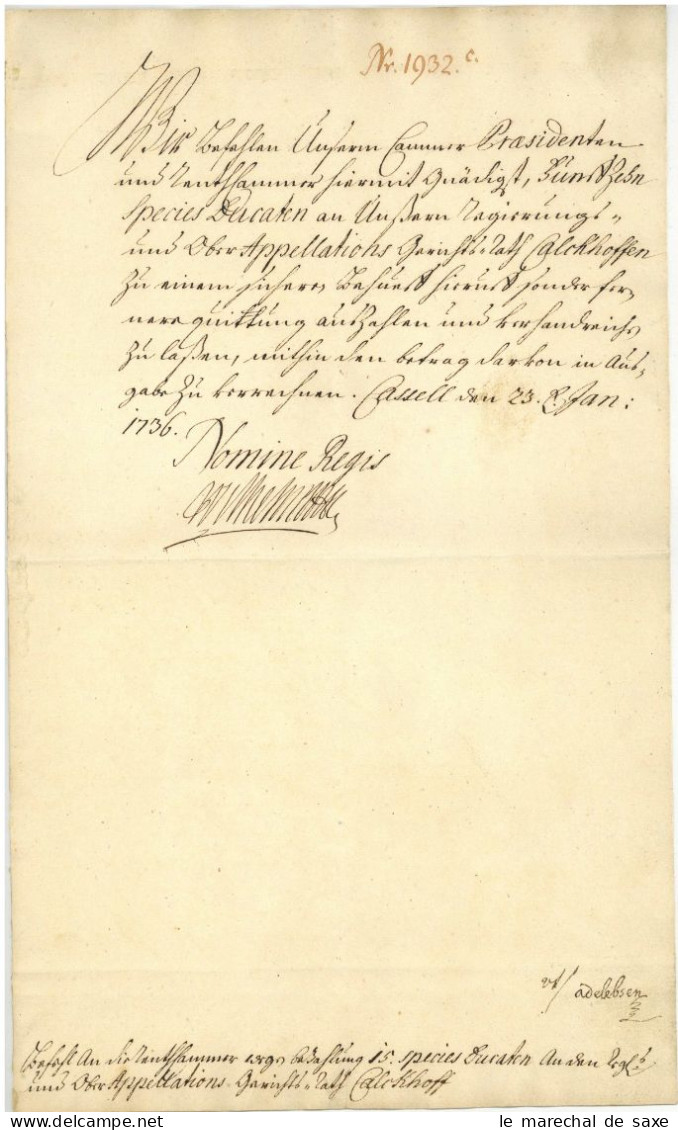 Nr. 1932.c.
Wir Befehlen Unserm Cammer Præsidenten
und Renthkammer hiermit Gnädigst, Fünffzehn
Species Ducaten an Unßern Regierungs-
und Ober Appellations Gerichts-Rath Calckhoffen
zu einem sichern Behueff hierauff sonder fer-
nere quittung auszahlen und verhandreichen
zu laßen, mithin den betrag darvon in Aus-
gabe zu verrechnen. Cassell den 23. Jan:
1736.
Nomine Regis
Wilhelm
vt/ adelebsen
Befehl An die Renthkammer wegen bezahlung 15. species Ducaten An den Regs
und Ober Appellations-Gerichts-Rath Calckhoff
le marechal de saxe